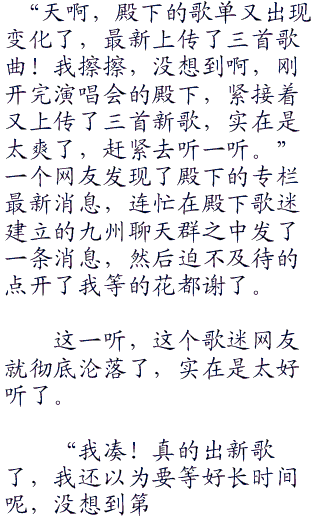 “天啊，殿下的歌单又出现
变化了，最新上传了三首歌
曲！我擦擦，没想到啊，刚
开完演唱会的殿下，紧接着
又上传了三首新歌，实在是
太爽了，赶紧去听一听。”
一个网友发现了殿下的专栏
最新消息，连忙在殿下歌迷
建立的九州聊天群之中发了
一条消息，然后迫不及待的
点开了我等的花都谢了。
这一听，这个歌迷网友
就彻底沦落了，实在是太好
听了。
“我凑！真的出新歌
了，我还以为要等好长时间
呢，没想到第